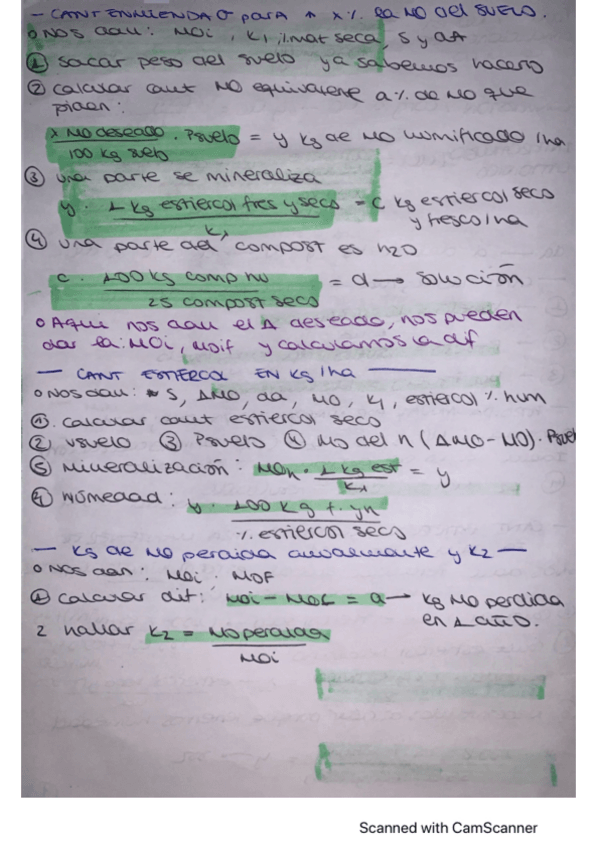 — CANT ENMIENDA O para ↑ x % la MO del SUELO.
o NOS dan: MOi, K1, % mat seca, S y da
① sacar peso del suelo ya sabemos hacerlo
② calcular cant MO equivalente a % de MO que
piden:
x MO deseado / 100 kg suelo · Psuelo = y kg de MO humificado /ha
③ una parte se mineraliza
y · 1 kg estiercol fres y seco / K1 = c kg estiercol seco
y fresco/ha
④ una parte del compost es H2O
c · 100 kg comp hu / 25 compost seco = d → solución
o Aqui nos dan el Δ deseado, nos pueden
dar la: MOi, MOif y calculamos la dif
— CANT ESTIERCOL EN kg/ha —
o NOS dan: S, ΔMO, da, MO, K1, estiercol % hum
①. calcular cant estiercol seco
② Vsuelo ③ Psuelo ④ MO del h (ΔMO - MO) · Psuelo
⑤ Mineralización: MOh · 1 kg est / K1 = y
④ Humedad: y · 100 kg f. yh / % estiercol seco
— Kg de MO perdida anualmente y K2 —
o NOS dan: MOi MOF
① calcular dif: MOi - MOf = a → kg MO perdida
en 1 año.
2 hallar K2 = MO perdida / MOi
Scanned with CamScanner